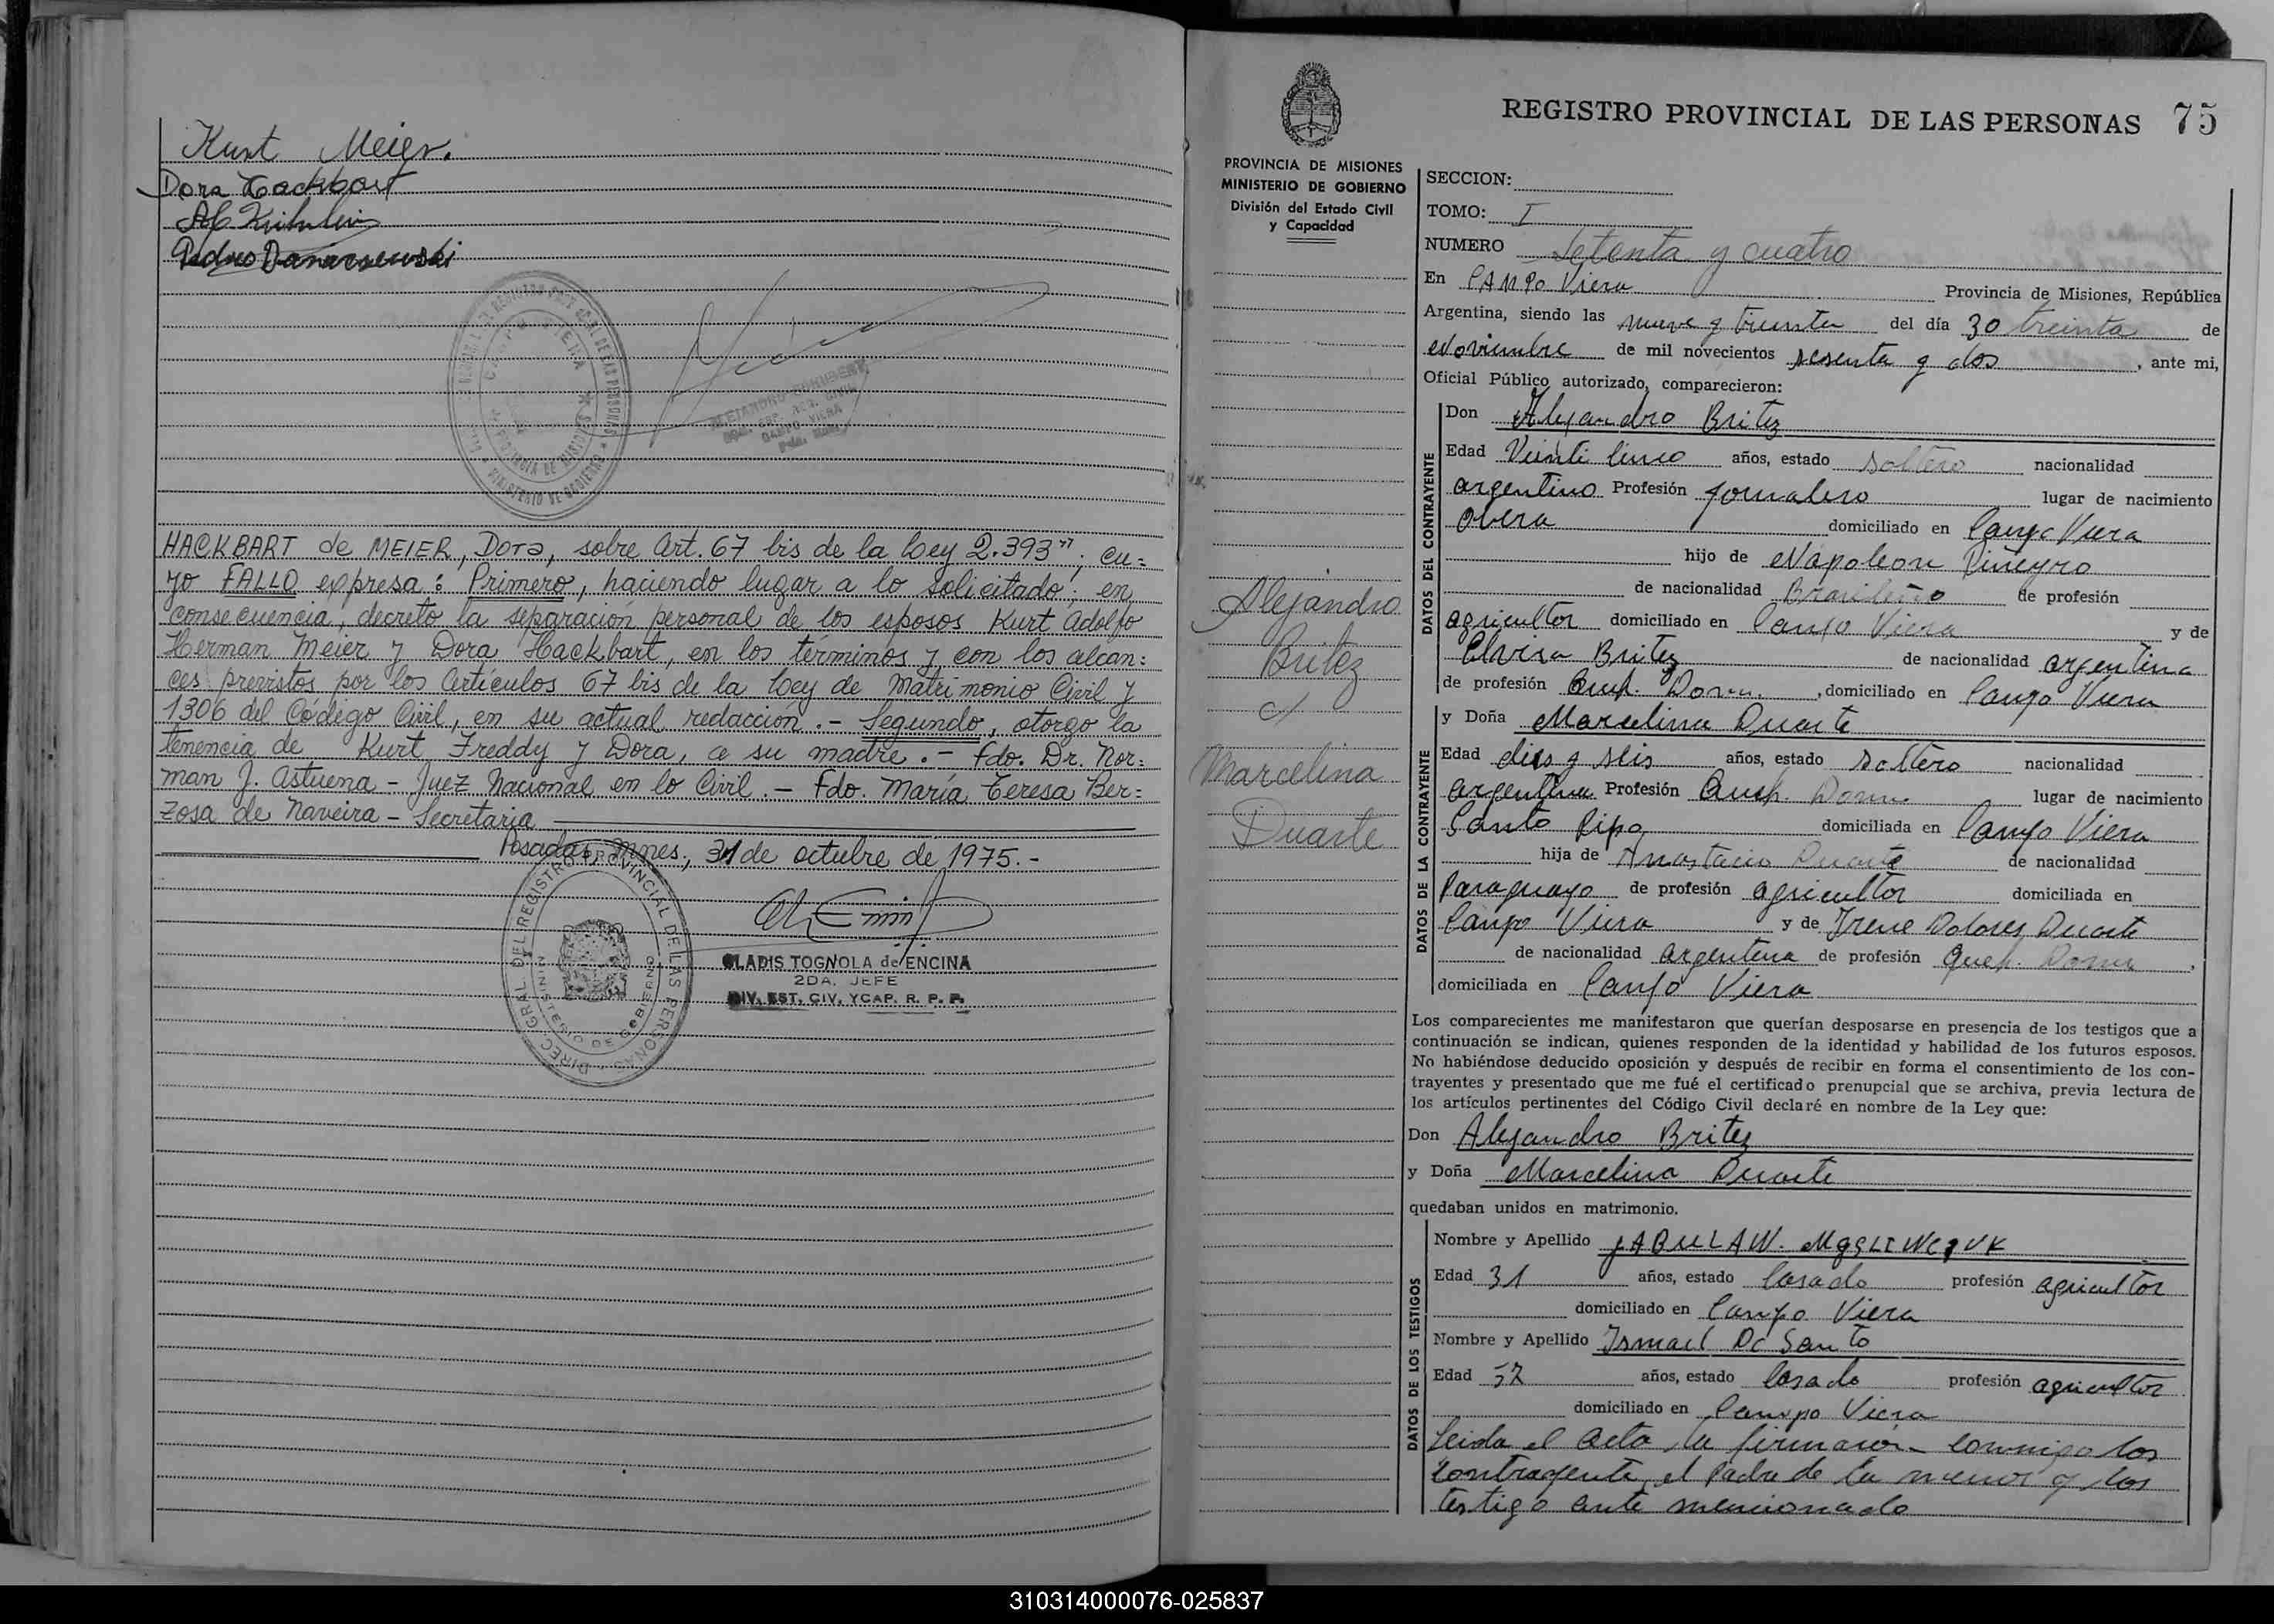 Kurt Meier.
Dora Hackbart
Pedro
HACKBART de MEIER, Dora, sobre Art. 67 bis de la Ley 2.393"; cu=
yo FALLO expresa: Primero, haciendo lugar a lo solicitado; en
consecuencia, decreto la separación personal de los esposos Kurt Adolfo
Herman Meier y Dora Hackbart, en los términos y con los alcan=
ces previstos por los Artículos 67 bis de la Ley de Matrimonio Civil y
1306 del Código Civil, en su actual redacción.- Segundo, otorgo la
tenencia de Kurt Freddy y Dora, a su madre.- Fdo. Dr. Nor=
man J. Astuena - Juez Nacional en lo Civil.- Fdo. María Teresa Ber=
zosa de Naveira - Secretaria
Posadas, Mnes., 31 de octubre de 1975.-
GLADIS TOGNOLA de ENCINA
2DA. JEFE
DIV. EST. CIV. Y CAP. R. P. P.
DIREC. GRAL. DEL REGISTRO PROVINCIAL DE LAS PERSONAS
MINISTERIO DE GOBIERNO
REGISTRO PROVINCIAL DE LAS PERSONAS 75
PROVINCIA DE MISIONES
MINISTERIO DE GOBIERNO
División del Estado Civil
y Capacidad
Alejandro
Britez
c/
Marcelina
Duarte
SECCION:
TOMO: I
NUMERO Setenta y cuatro
En CAMPO Viera Provincia de Misiones, República
Argentina, siendo las nueve y treinta del día 30 treinta de
Noviembre de mil novecientos sesenta y dos, ante mi,
Oficial Público autorizado, comparecieron:
DATOS DEL CONTRAYENTE
Don Alejandro Britez
Edad Veinti Cinco años, estado soltero nacionalidad
argentino Profesión Jornalero lugar de nacimiento
Obera domiciliado en Campo Viera
hijo de Napoleon Piñeyro
de nacionalidad Brasileño de profesión
agricultor domiciliado en Campo Viera y de
Elvira Britez de nacionalidad argentina
de profesión Queh. Dom., domiciliado en Campo Viera
DATOS DE LA CONTRAYENTE
y Doña Marcelina Duarte
Edad dies y seis años, estado soltero nacionalidad
argentina Profesión Queh. Dom. lugar de nacimiento
Santo Pipo domiciliada en Campo Viera
hija de Anastacio Duarte de nacionalidad
Paraguayo de profesión agricultor domiciliada en
Campo Viera y de Irene Dolores Duarte
de nacionalidad argentina de profesión Queh. Dom.
domiciliada en Campo Viera
Los comparecientes me manifestaron que querían desposarse en presencia de los testigos que a
continuación se indican, quienes responden de la identidad y habilidad de los futuros esposos.
No habiéndose deducido oposición y después de recibir en forma el consentimiento de los con-
trayentes y presentado que me fué el certificado prenupcial que se archiva, previa lectura de
los artículos pertinentes del Código Civil declaré en nombre de la Ley que:
Don Alejandro Britez
y Doña Marcelina Duarte
quedaban unidos en matrimonio.
DATOS DE LOS TESTIGOS
Nombre y Apellido
Edad 31 años, estado Casado profesión agricultor
domiciliado en Campo Viera
Nombre y Apellido Ismael Do Santo
Edad años, estado Casado profesión agricultor
domiciliado en Campo Viera
Leida el acta, la firmaron conmigo los
contrayente, el padre de la menor y los
testigo ante mencionado
310314000076-025837